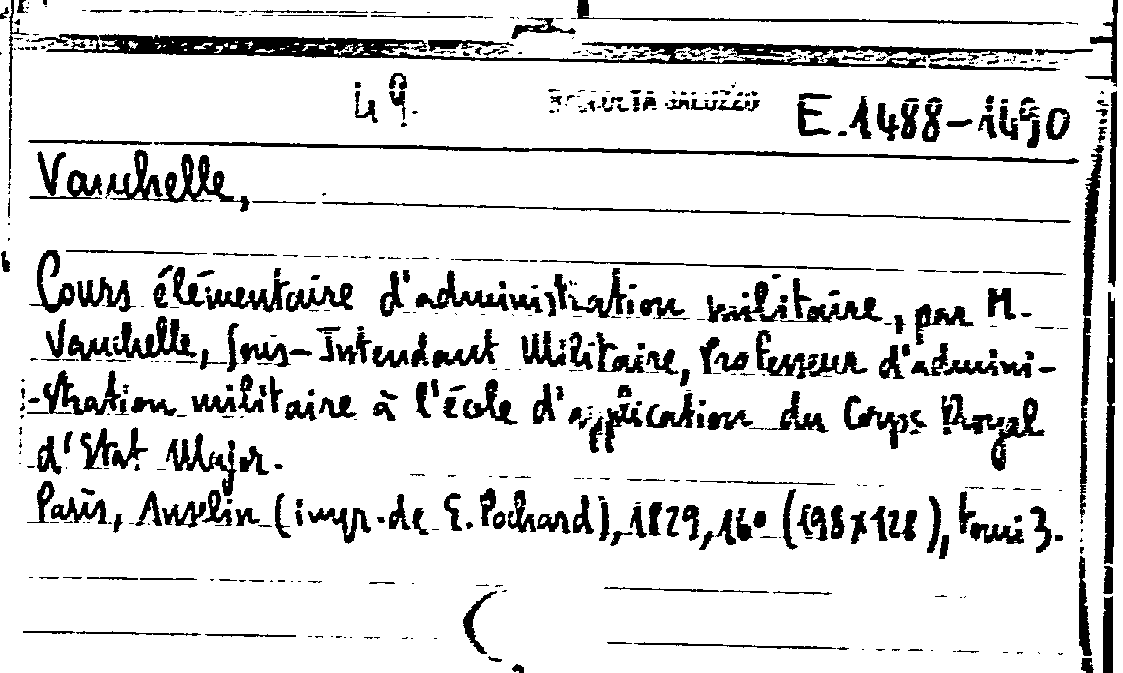 49. RACCOLTA SALUZZO E.1488-1490
Vauchelle,
Cours élémentaire d'administration militaire, par M.
Vauchelle, Sous-Intendant Militaire, Professeur d'admini-
-stration militaire à l'école d'application du Corps Royal
d'Etat Major.
Paris, Anselin (impr. de E. Pochard), 1829, 16° (198x128), tomi 3.